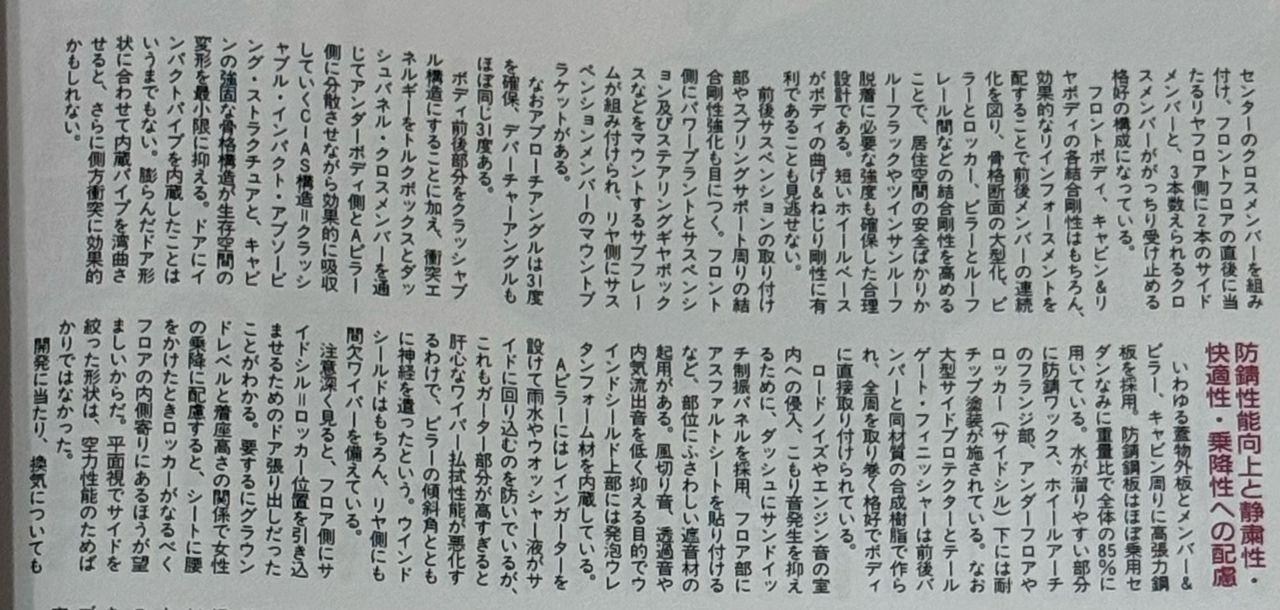 センターのクロスメンバーを組み
付け、フロントフロアの直後に当
たるリヤフロア側に2本のサイド
メンバーと、3本数えられるクロ
スメンバーががっちり受け止める
格好の構成になっている。
フロントボディ、キャビン&リ
ヤボディの各結合剛性はもちろん、
効果的なリインフォースメントを
配することで前後メンバーの連続
化を図り、骨格断面の大型化、ピ
ラーとロッカー、ピラーとルーフ
レール間などの結合剛性を高める
ことで、居住空間の安全ばかりか
ルーフラックやツインサンルーフ
脱着に必要な強度も確保した合理
設計である。短いホイールベース
がボディの曲げ&ねじり剛性に有
利であることも見逃せない。
前後サスペンションの取り付け
部やスプリングサポート周りの結
合剛性強化も目につく。フロント
側にパワープラントとサスペンシ
ョン及びステアリングギヤボック
スなどをマウントするサブフレー
ムが組み付けられ、リヤ側にサス
ペンションメンバーのマウントブ
ラケットがある。
なおアプローチアングルは31度
を確保、デパーチャーアングルも
ほぼ同じ31度ある。
ボディ前後部分をクラッシャブ
ル構造にすることに加え、衝突エ
ネルギーをトルクボックスとダッ
シュパネル・クロスメンバーを通
じてアンダーボディ側とAピラー
側に分散させながら効果的に吸収
していくCIAS構造=クラッシ
ャブル・インパクト・アブソービ
ング・ストラクチュアと、キャビ
ンの強固な骨格構造が生存空間の
変形を最小限に抑える。ドアにイ
ンパクトパイプを内蔵したことは
いうまでもない。膨らんだドア形
状に合わせて内蔵パイプを湾曲さ
せると、さらに側方衝突に効果的
かもしれない。
防錆性能向上と静粛性・
快適性・乗降性への配慮
いわゆる蓋物外板とメンバー&
ピラー、キャビン周りに高張力鋼
板を採用。防錆鋼板はほぼ乗用セ
ダンなみに重量比で全体の85%に
用いている。水が溜りやすい部分
に防錆ワックス、ホイールアーチ
のフランジ部、アンダーフロアや
ロッカー(サイドシル)下には耐
チップ塗装が施されている。なお
大型サイドプロテクターとテール
ゲート・フィニッシャーは前後バ
ンパーと同材質の合成樹脂で作ら
れ、全周を取り巻く格好でボディ
に直接取り付けられている。
ロードノイズやエンジン音の室
内への侵入、こもり音発生を抑え
るために、ダッシュにサンドイッ
チ制振パネルを採用、フロア部に
アスファルトシートを貼り付ける
など、部位にふさわしい遮音材の
起用がある。風切り音、透過音や
内気流出音を低く抑える目的でウ
インドシールド上部には発泡ウレ
タンフォーム材を内蔵している。
Aピラーにはレインガーターを
設けて雨水やウオッシャー液がサ
イドに回り込むのを防いでいるが、
これもガーター部分が高すぎると
肝心なワイパー払拭性能が悪化す
るわけで、ピラーの傾斜角ととも
に神経を遣ったという。ウインド
シールドはもちろん、リヤ側にも
間欠ワイパーを備えている。
注意深く見ると、フロア側にサ
イドシル=ロッカー位置を引き込
ませるためのドア張り出しだった
ことがわかる。要するにグラウン
ドレベルと着座高さの関係で女性
の乗降に配慮すると、シートに腰
をかけたときロッカーがなるべく
フロアの内側寄りにあるほうが望
ましいからだ。平面視でサイドを
絞った形状は、空力性能のためば
かりではなかった。
開発に当たり、換気についても